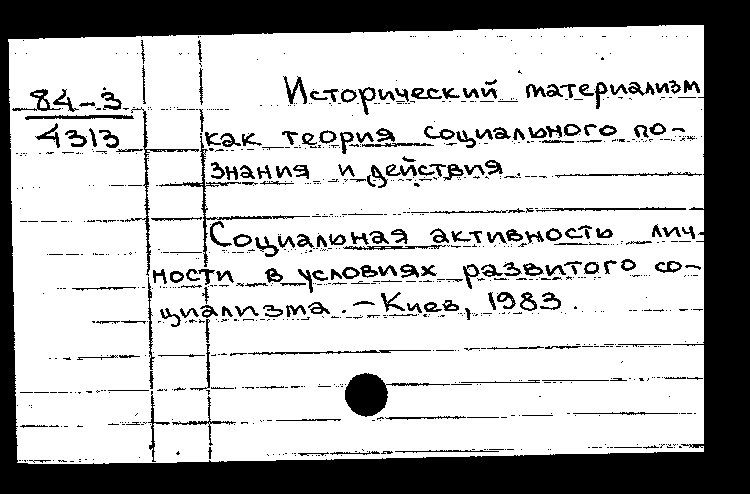 84-3
4313
Исторический материализм
как теория социального по-
знания и действия.
Социальная активность лич-
ности в условиях развитого со-
циализма. - Киев, 1983.